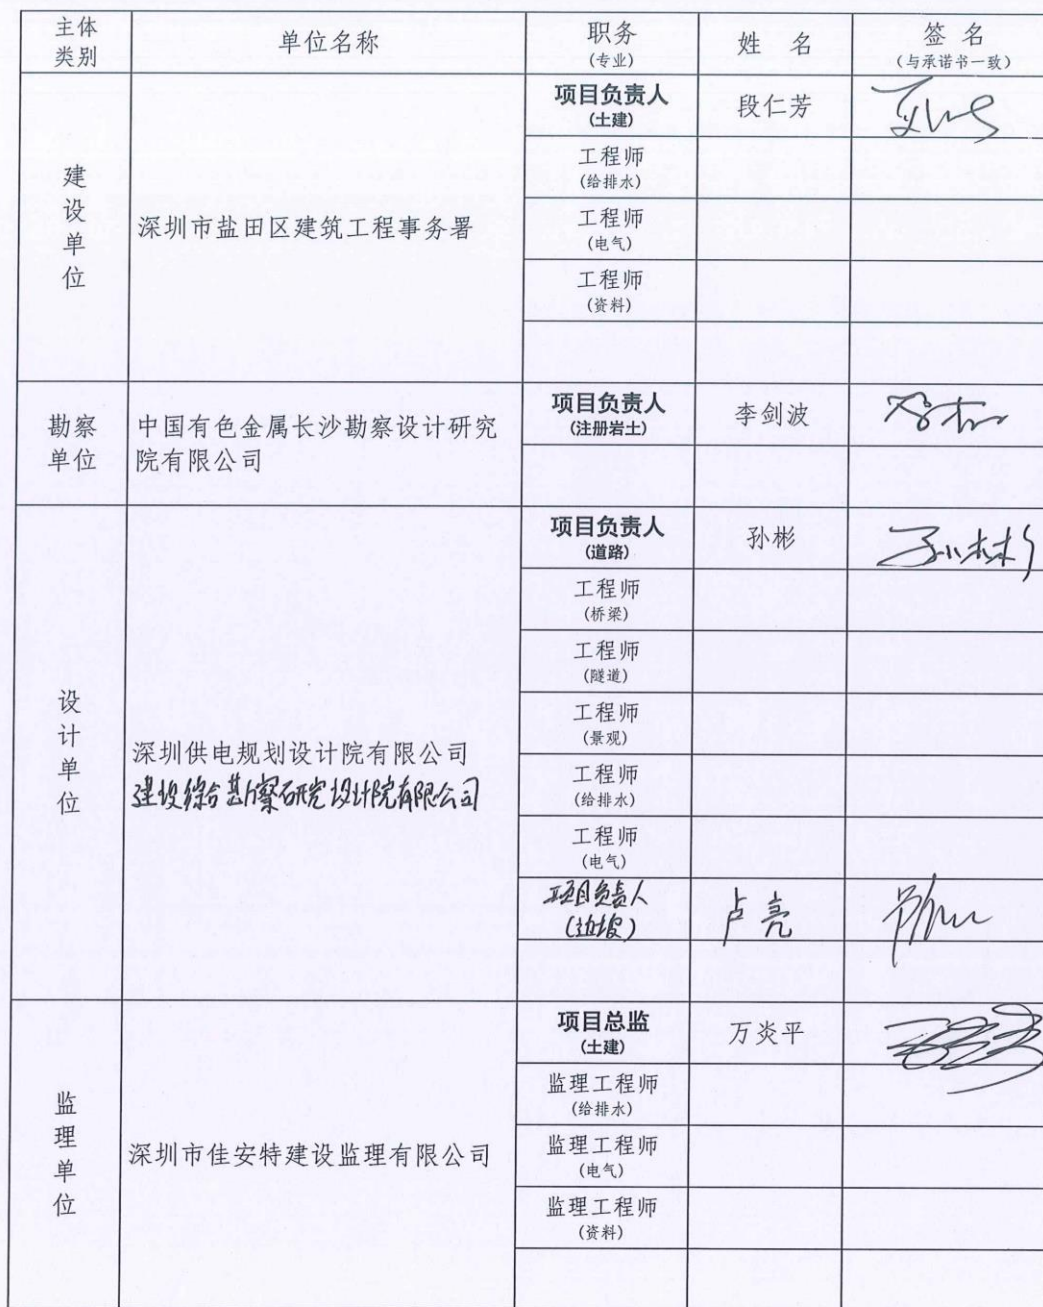 主体
类别
单位名称
职务
(专业)
姓 名
签 名
(与承诺书一致)
建
设
单
位
深圳市盐田区建筑工程事务署
项目负责人
(土建)
段仁芳
工程师
(给排水)
工程师
(电气)
工程师
(资料)
勘察
单位
中国有色金属长沙勘察设计研究
院有限公司
项目负责人
(注册岩土)
李剑波
设
计
单
位
深圳供电规划设计院有限公司
建设综合勘察研究设计院有限公司
项目负责人
(道路)
孙彬
孙彬
工程师
(桥梁)
工程师
(隧道)
工程师
(景观)
工程师
(给排水)
工程师
(电气)
项目负责人
(边坡)
卢亮
监
理
单
位
深圳市佳安特建设监理有限公司
项目总监
(土建)
万炎平
监理工程师
(给排水)
监理工程师
(电气)
监理工程师
(资料)